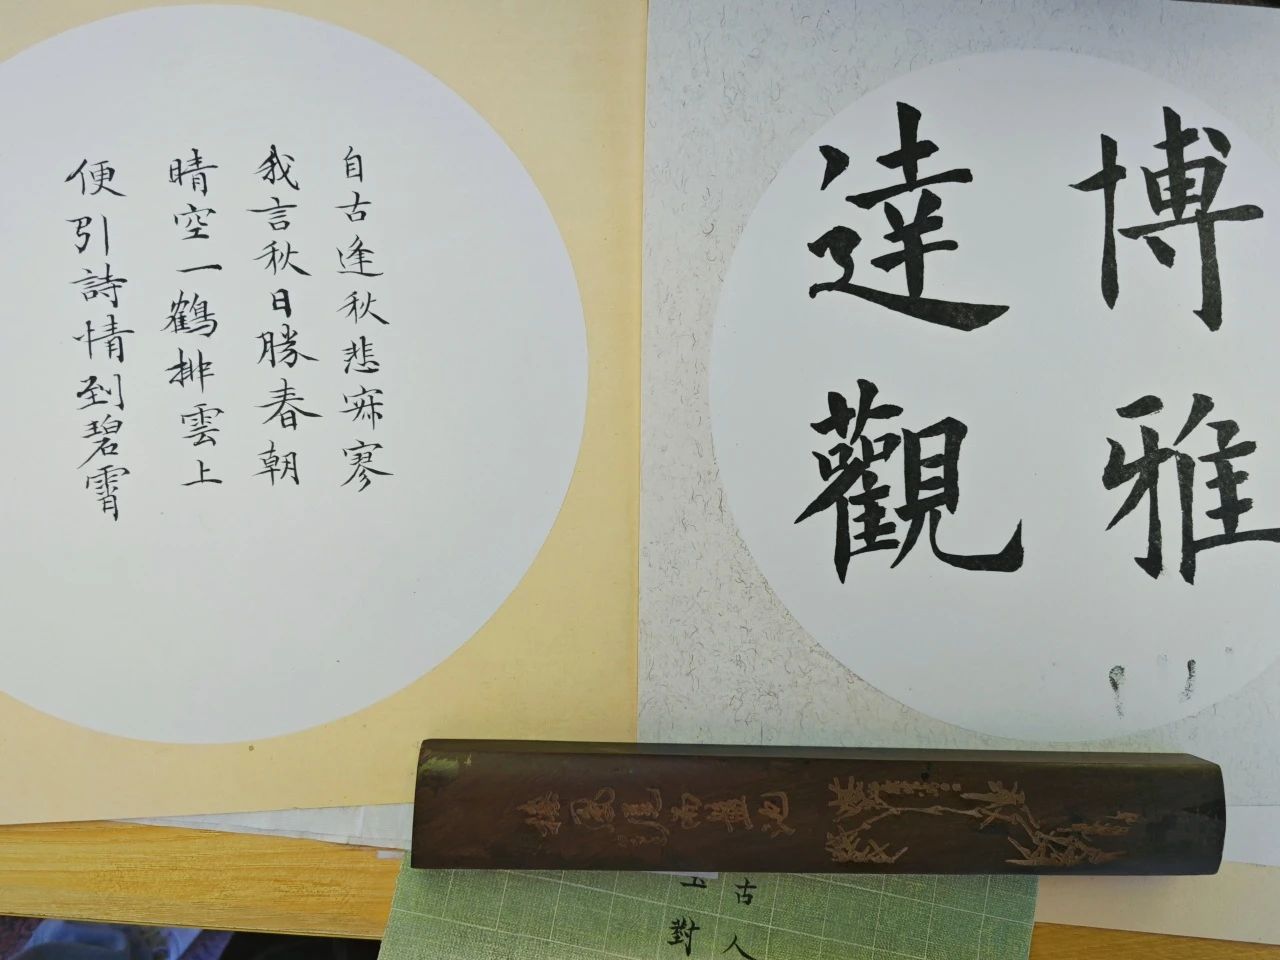 自古逢秋悲寂寥
我言秋日勝春朝
晴空一鶴排雲上
便引詩情到碧霄
博雅
達觀
古人
對